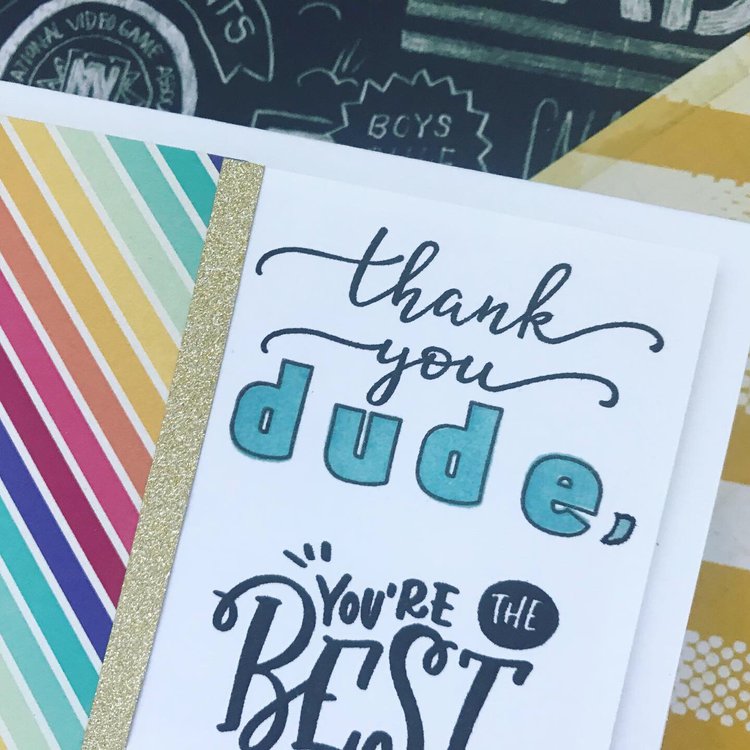 NATIONAL VIDEO GAME
NTS
BOYS
thank
you
dude,
YOU'RE THE
BEST